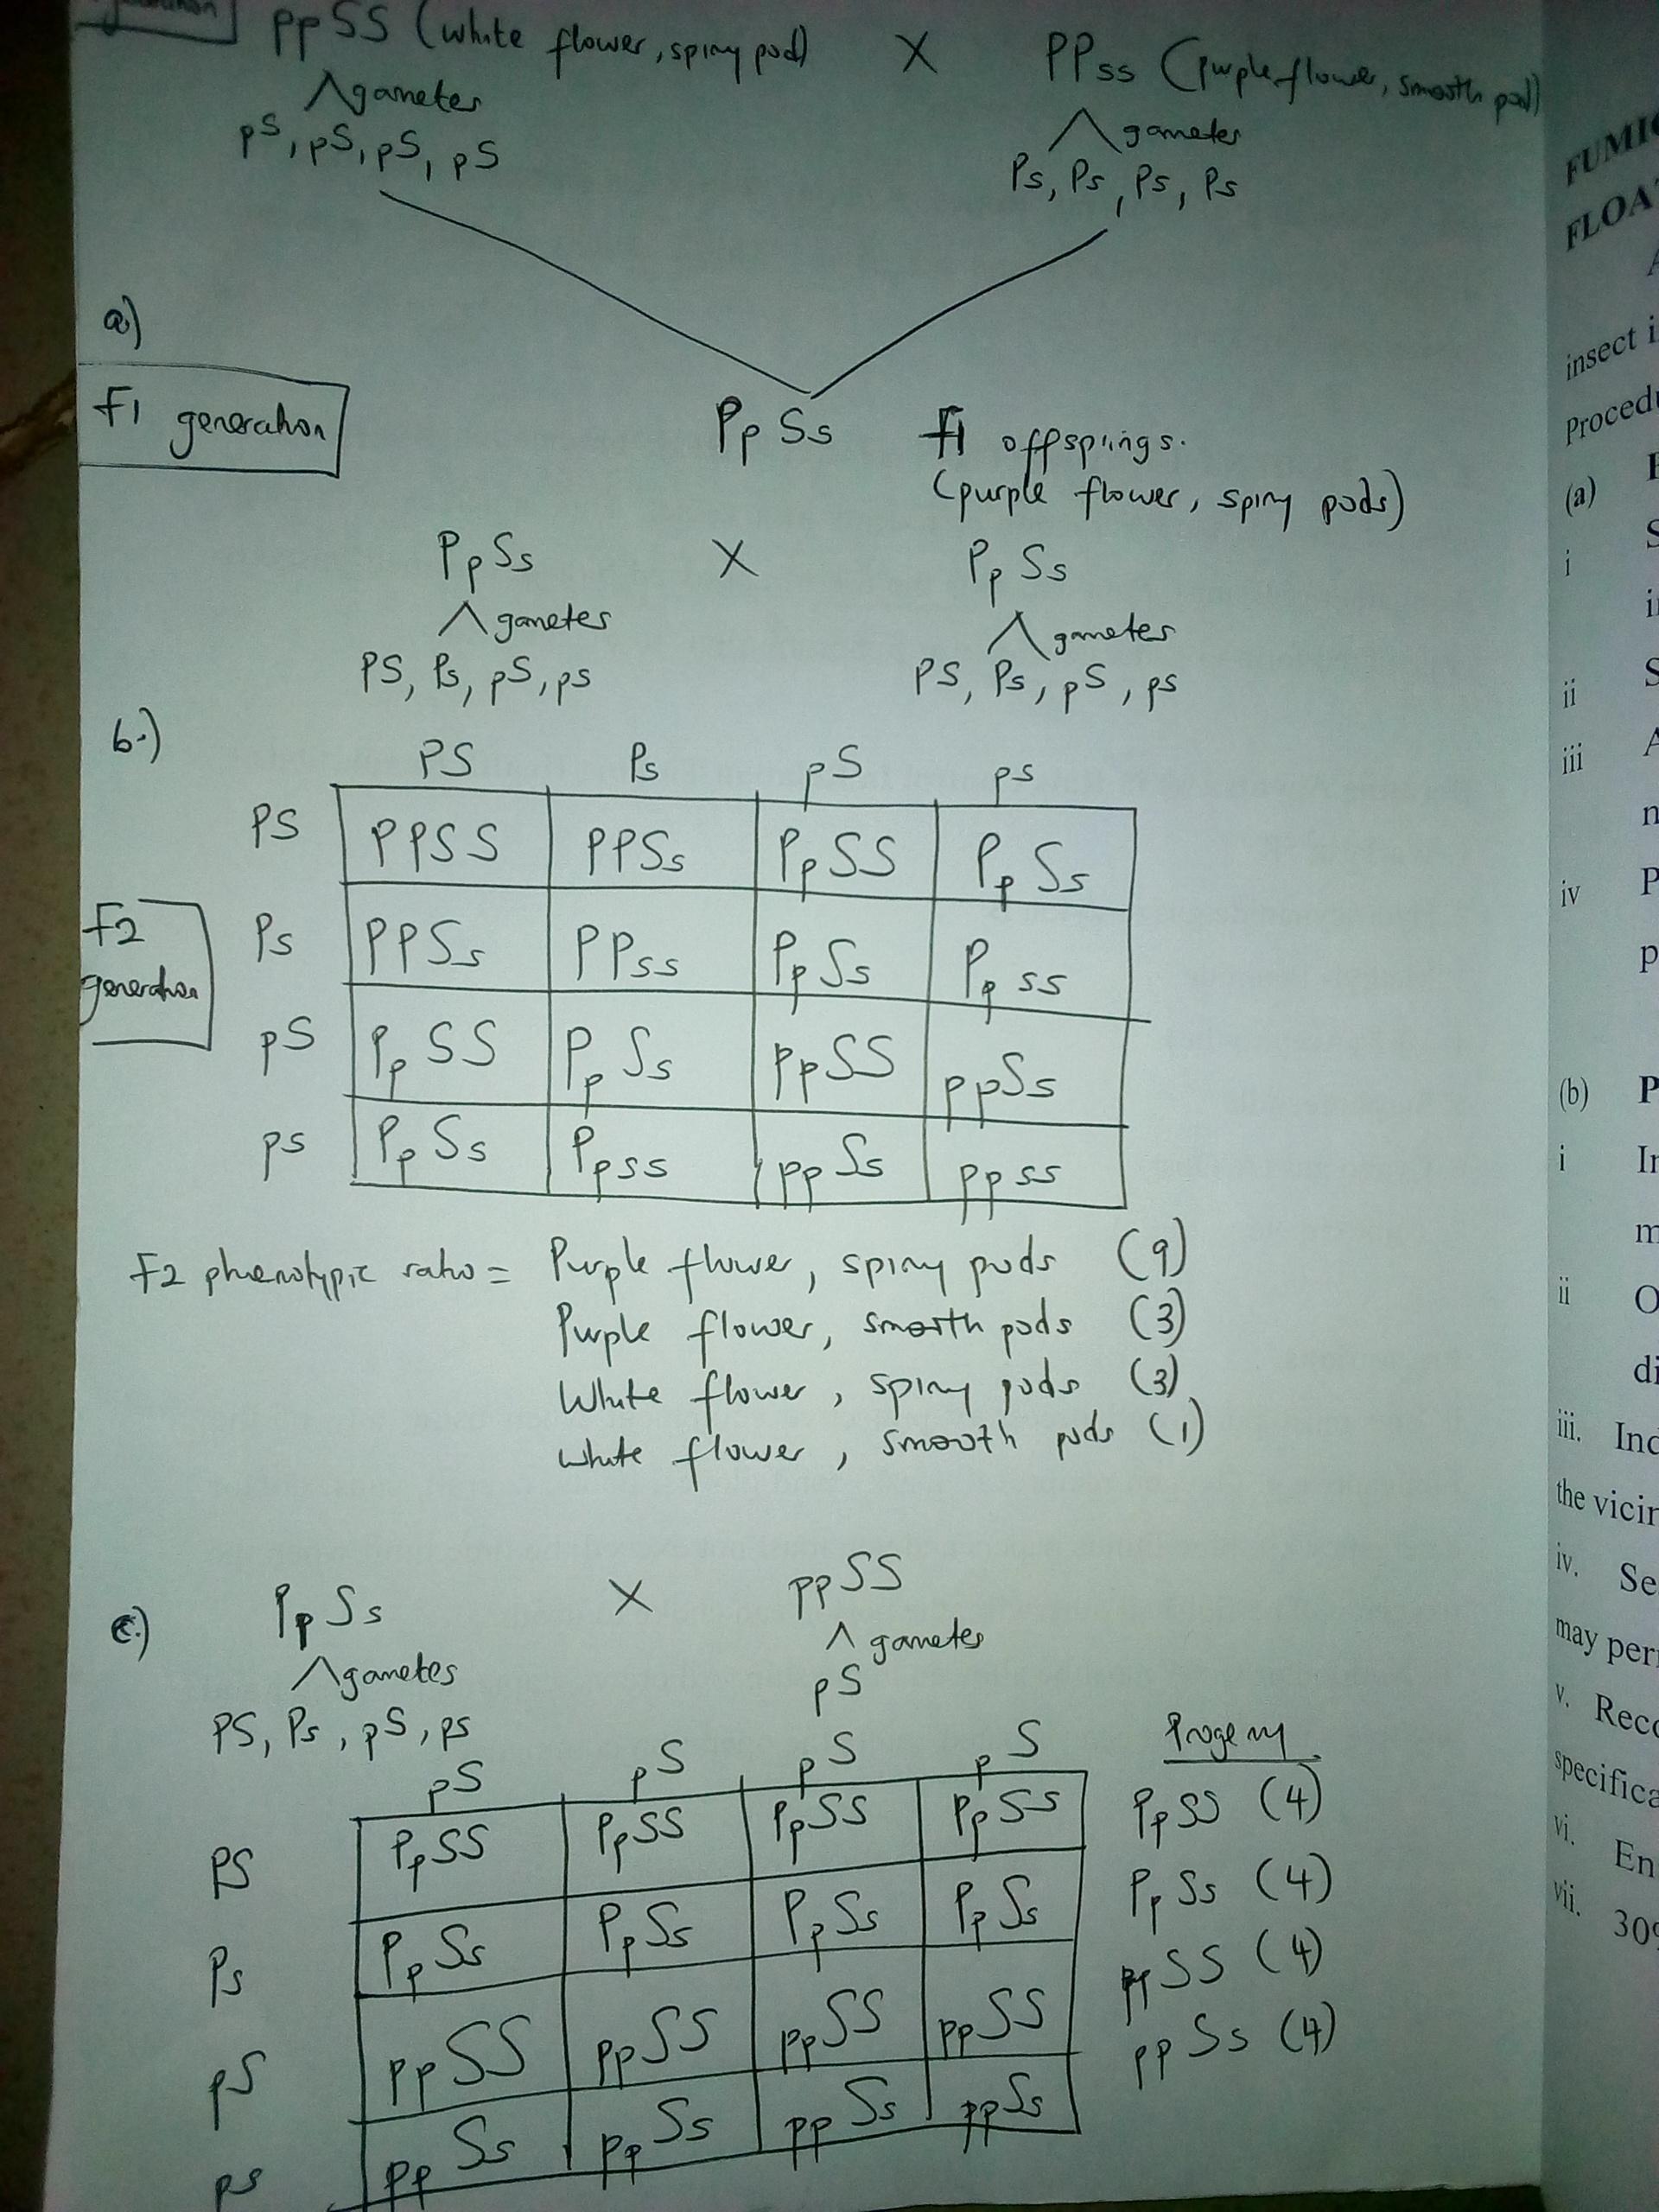 ppSS (white flower, spiny pod) X PPss (purple flower, smooth pod)
gametes gametes
pS, pS, pS, pS Ps, Ps, Ps, Ps
a)
F1 generation
PpSs F1 offsprings.
(purple flower, spiny pods)
PpSs X PpSs
gametes gametes
PS, Ps, pS, ps PS, Ps, pS, ps
b.)
PS Ps pS ps
PS PPSS PPSs PpSS PpSs
F2 generation
Ps PPSs PPss PpSs Ppss
pS PpSS PpSs ppSS ppSs
ps PpSs Ppss ppSs ppss
F2 phenotypic ratio = Purple flower, spiny pods (9)
Purple flower, smooth pods (3)
White flower, spiny pods (3)
white flower, smooth pods (1)
c.) PpSs X ppSS
gametes gametes
PS, Ps, pS, ps pS
pS pS pS pS
PS PpSS PpSS PpSS PpSS
Ps PpSs PpSs PpSs PpSs
pS ppSS ppSS ppSS ppSS
ps ppSs ppSs ppSs ppSs
Progeny
PpSS (4)
PpSs (4)
ppSS (4)
ppSs (4)
insect
(a)
i
ii
iii
iv
(b)
i
ii
iii.
the
iv.
may
v.
vi.
vii.